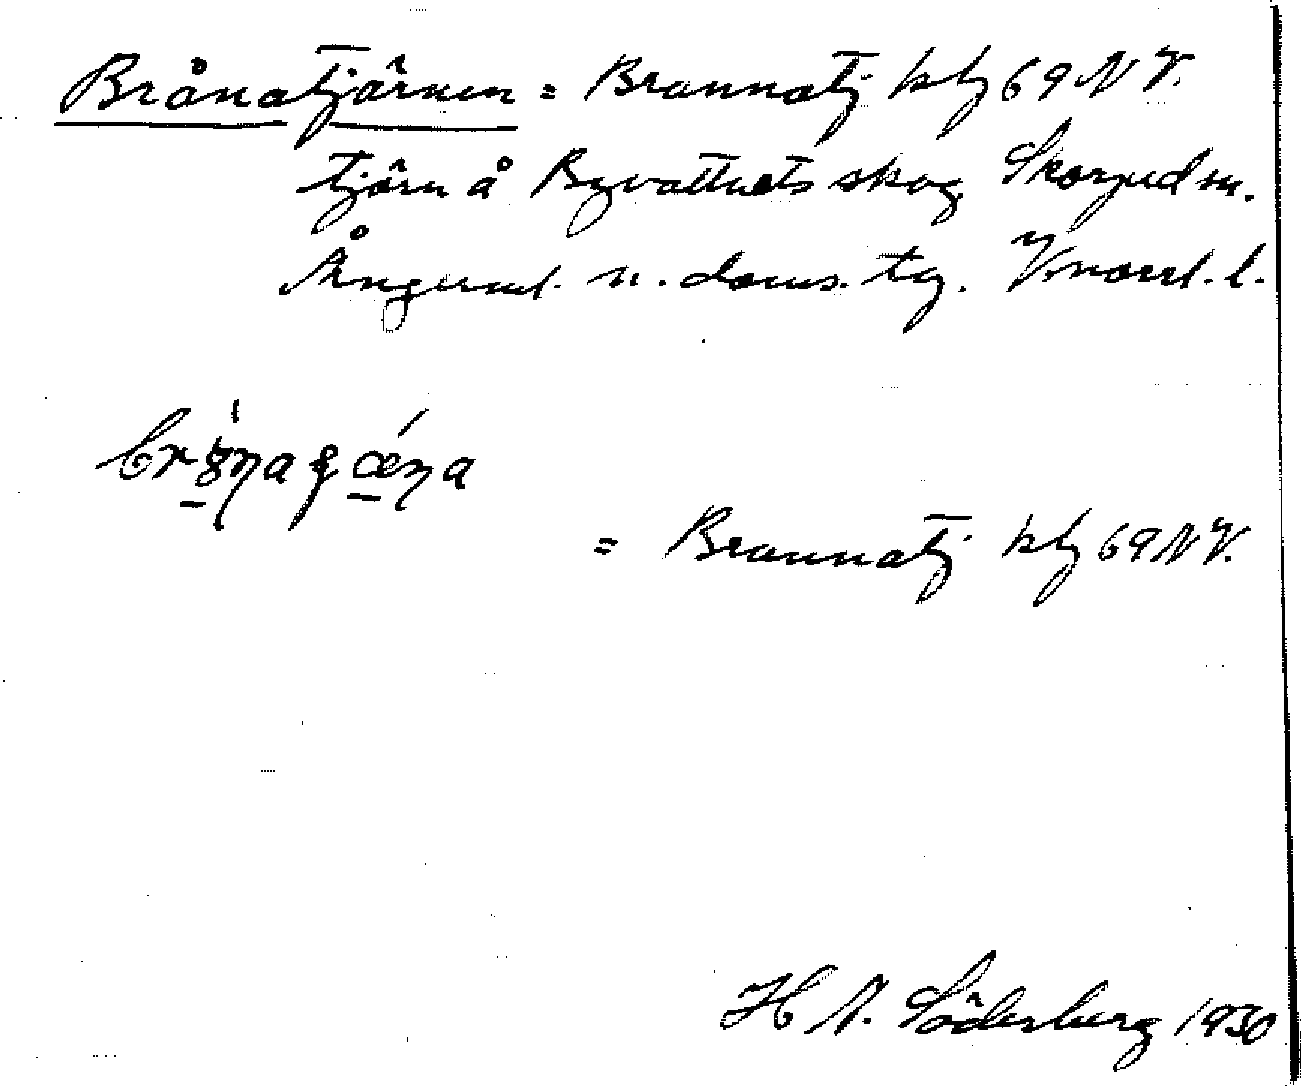 Brånatjärnen = Brannatj. kbl 69 NV.
tjärn å Byvattnets skog, Skorped sn.
Ångerml. n. doms. tg. Vnorrl. l.
= Brannatj. kbl 69 NV.
H N. Söderberg 1930